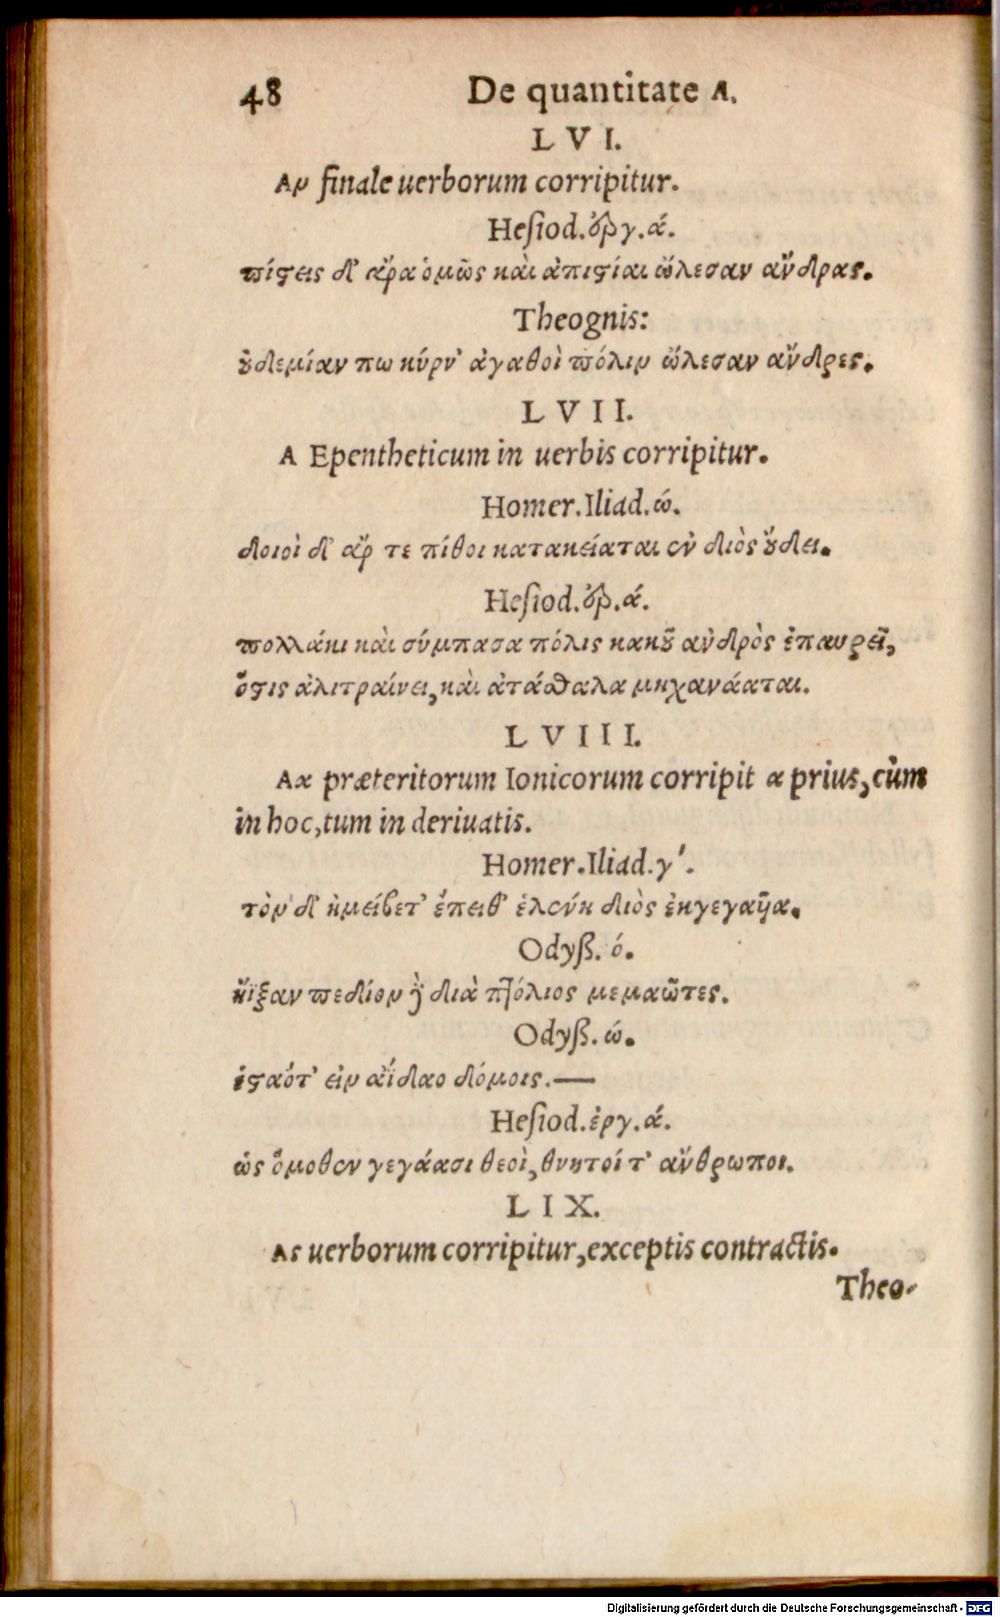 48 De quantitate Α.
LVI.
Αν finale uerborum corripitur.
Hesiod. ὀργ. ά.
πίστεις δ' ἄρα ὁμῶς καὶ ἀπιστίαι ὤλεσαν ἄνδρας.
Theognis:
οὐδεμίαν πω κύρν' ἀγαθοὶ πόλιν ὤλεσαν ἄνδρες.
LVII.
Α Epentheticum in uerbis corripitur.
Homer. Iliad. ώ.
δοιοὶ δ' ἄρ τε πίθοι κατακείαται ἐν διὸς οὔδει.
Hesiod. ὀρ. ά.
πολλάκι καὶ σύμπασα πόλις κακοῦ ἀνδρὸς ἐπαυρεῖ,
ὅστις ἀλιτραίνει, καὶ ἀτάσθαλα μηχανάαται.
LVIII.
Αα præteritorum Ionicorum corripit α prius, cùm
in hoc, tum in deriuatis.
Homer. Iliad. γ'.
τὸν δ' ἠμείβετ' ἔπειθ' ἑλένη διὸς ἐκγεγαῦα.
Odyß. ό.
ἤϊξαν πεδίον ἢ διὰ πτόλιος μεμαῶτες.
Odyß. ώ.
ἑσταότ' εἰν ἀΐδαο δόμοις.—
Hesiod. ἐργ. ά.
ὡς ὅμοθεν γεγάασι θεοὶ, θνητοί τ' ἄνθρωποι.
LIX.
Ας uerborum corripitur, exceptis contractis.
Theo-
Digitalisierung gefördert durch die Deutsche Forschungsgemeinschaft - DFG